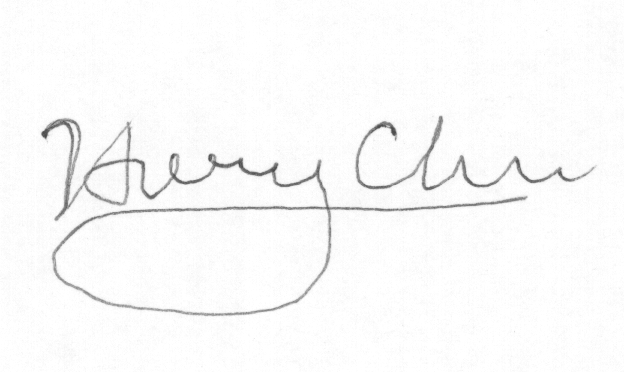 Henry Chu